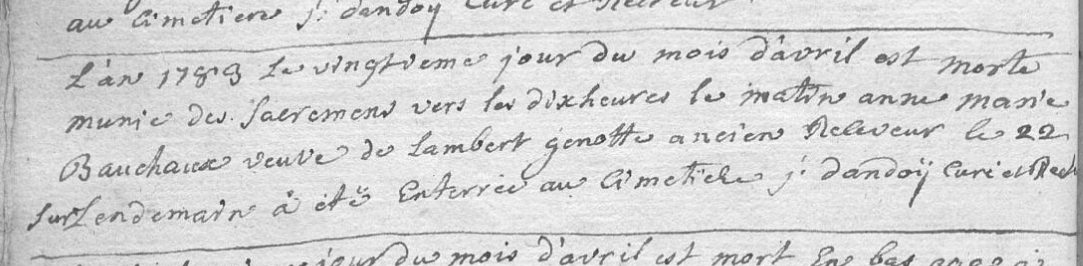 au Cimetiere j: dandoÿ Curé et Recteur
L'án 1783 Le vingtieme jour du mois d'ávril est morte
munie des Sacremens vers les dix heures le matin anne marie
Bauchaux veuve de Lambert genotte ancien Releveur le 22
surLendemain â été Enterrée au Cimetiere j: dandoÿ Curé et Rect
jour du mois d'âvril est mort En bas